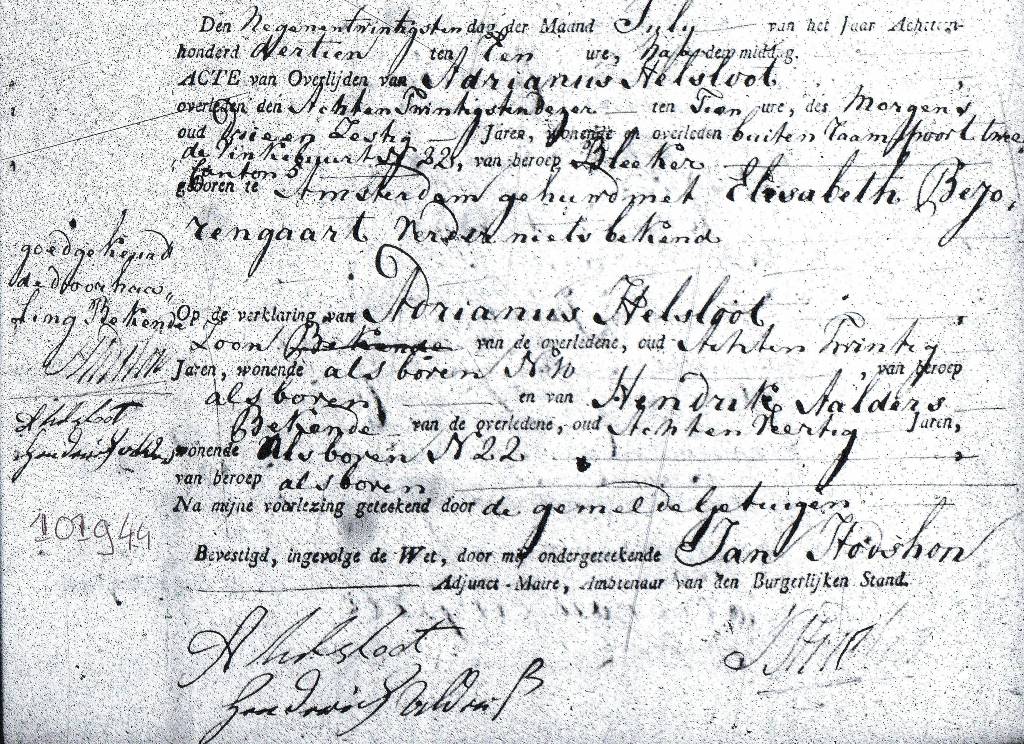 Den Negenentwintigsten dag der Maand July van het Jaar Achttien-
honderd dertien ten Tien ure, na demiddag.
ACTE van Overlijden van Adrianus Helsloot
overleden den Achten Twintigsten dezer ten Tien ure, des Morgen's
oud Drie en Zestig Jaren, wonende en overleden buiten Zaamspoort twee
de Vinkebuurt N 22, van beroep Bleeker
Canton 5
geboren te Amsterdam gehuwd met Elisabeth Bejo,
rengaart Verder niets bekend
goedgekeurd
de doorhaa„
ling Bekende
A Helsloot
Op de verklaring van Adrianus Helsloot
Zoon Bekende van de overledene, oud Achten Twintig
Jaren, wonende als boven N 10 , van beroep
als boven en van Hendrik Aalders
Bekende van de overledene, oud Achten Veertig Jaren,
wonende Als boven N 22
van beroep als boven
Na mijne voorlezing geteekend door de gemelde getuigen
101944
Bevestigd, ingevolge de Wet, door mij ondergeteekende Jan Hodshon
Adjunct-Maire, Ambtenaar van den Burgerlijken Stand.
A Helsloot
Hendrick Alders